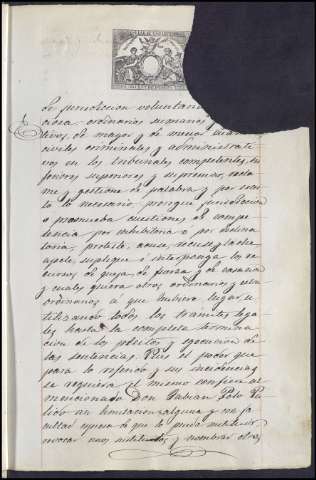 de jurisdiccion voluntaria
ordinarios sumarios
tivos, de mayor y de menor cuantia
civiles criminales y administrati-
vos en los tribunales competentes, in-
feriores superiores y supremos, recla-
me y gestione de palabra y por escri-
to lo necesario, prorogue jurisdiccion
o promueba cuestiones de compe-
tencia por inhibitoria o por declina-
toria, proteste, acuse, recuse y tache
apele, suplique e interponga los re-
cursos de queja, de fuerza y de casacion
y cuales quiera otros ordinarios y extra
ordinarios á que hubiere lugar, u-
tilizando todos los tramites lega-
les hasta la completa termina-
cion de los pleitos y egecucion de
las sentencias. Pues el poder que
para lo referido y sus incidencias
se requiera el mismo confiere al
mencionado Don Fabian Polo
sin limitacion alguna y con fa-
cultad espresa de que lo pueda sustituir
revocar unos sustitutos y nombrar otros